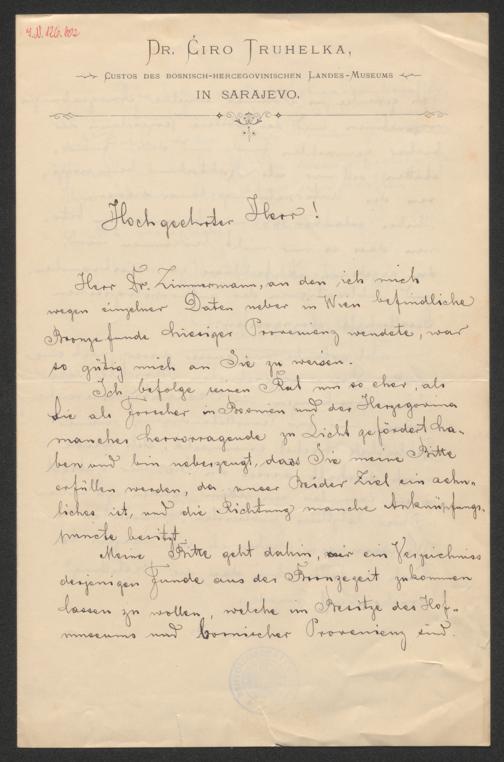 DR. ĆIRO TRUHELKA,
CUSTOS DES BOSNISCH-HERCEGOVINISCHEN LANDES-MUSEUMS
IN SARAJEVO.
Hochgeehrter Herr!
Herr Dr. Zimmermann, an den ich mich
wegen einzelner Daten ueber in Wien befindliche
Bronzefunde hiesiger Provenienz wendete, war
so gütig mich an Sie zu weisen.
Ich befolge seinen Rat um so eher, als
Sie als Forscher in Bosnien und der Herzegovina
manches hervorragende zu Licht gefördert ha-
ben und bin ueberzeugt, dass Sie meine Bitte
erfüllen werden, da unser Beider Ziel ein aehn-
liches ist, und die Richtung manche Anknüpfungs-
puncte besitzt.
Meine Bitte geht dahin, mir ein Verzeichniss
derjenigen Funde aus der Bronzezeit zukommen
lassen zu wollen, welche im Besitze des Hof-
museums und bosnischer Provenienz sind.